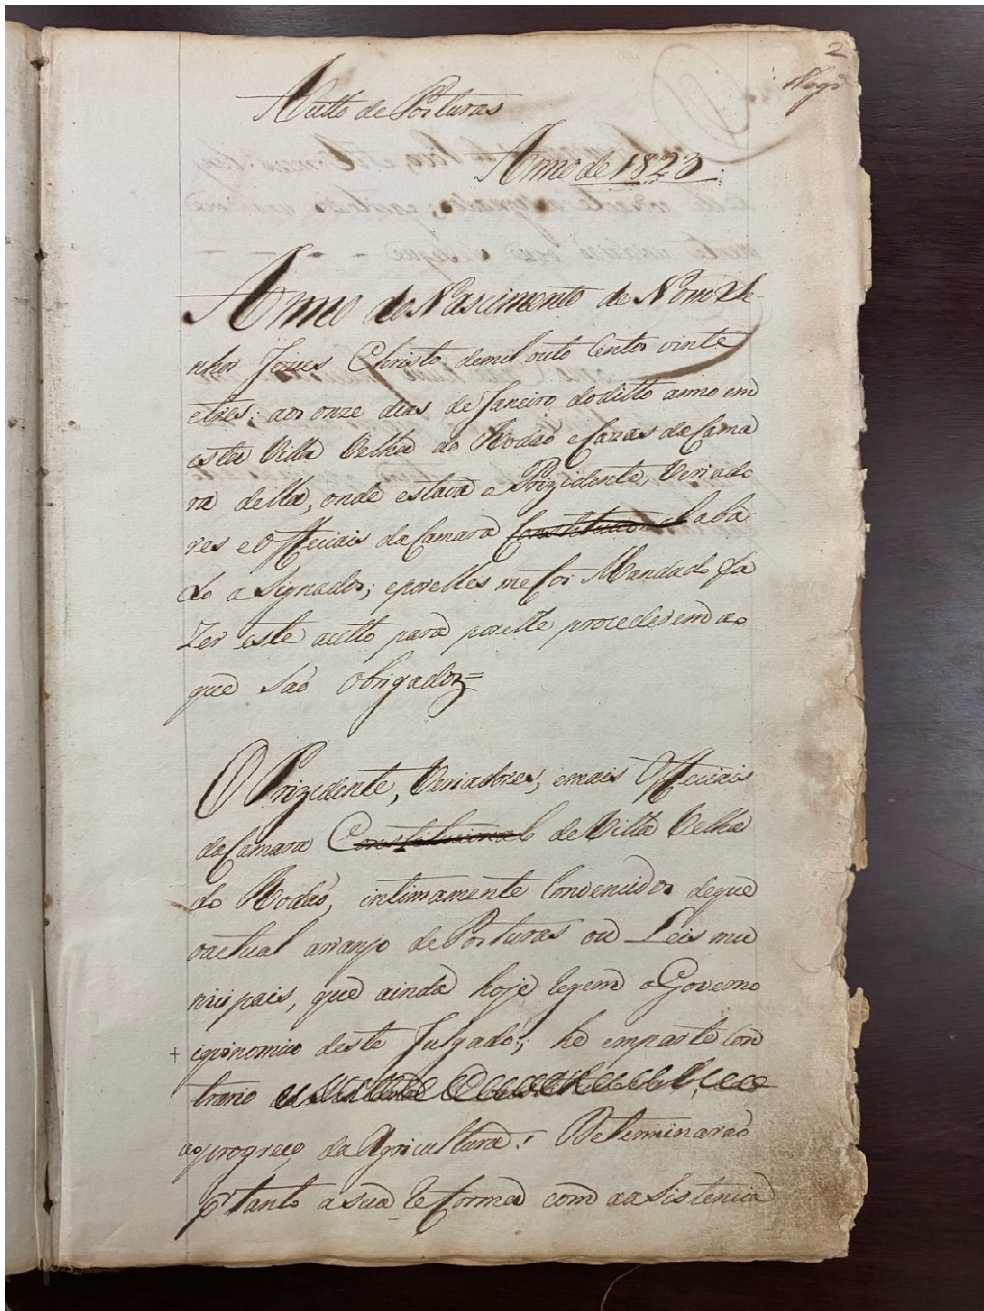 2
Autto de Posturas
Anno de 1823
Anno do Nascimento de Nosso Se-
nhor Jezus Christo demil outo Centos vinte
etres: aos onze dias de Janeiro doditto anno em
esta Villa Velha do Rodaõ e Cazas da Cama
ra della, onde estava o Prizidente, Veriado
res e Officiais da Camara Constitucional aba
do aSignados; eporelles me foi Mandado fa
Zer este autto para porelle procederem ao
que saõ Obrigados=
O Prizidente, Veriadores, emais Officiais
da Camara Constitucional de Villa Velha
do Rodaõ, intimamente Convencidos deque
oactual arranjo de Posturas ou Leis mu
nisipais, que ainda hoje regem o Governo
iquinomico deste Julgado; he emparte con
trario
ao progreço da Agricultura: Determinaraõ
pr. tanto asua Reforma com aaSistencia